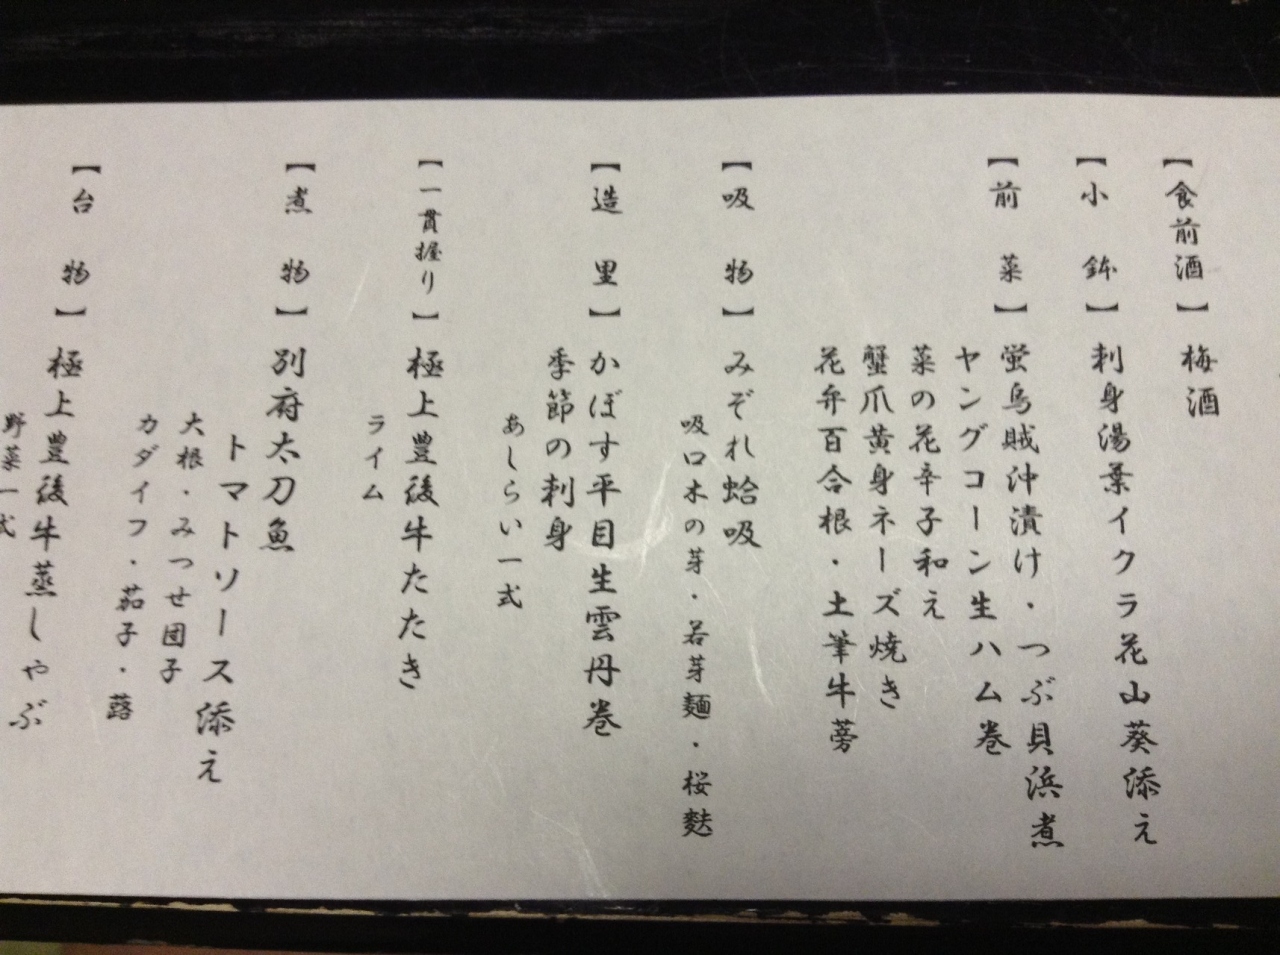 【食前酒】梅酒
【小鉢】刺身湯葉イクラ花山葵添え
【前菜】蛍烏賊沖漬け・つぶ貝浜煮
ヤングコーン生ハム巻
菜の花辛子和え
蟹爪黄身ネーズ焼き
花弁百合根・土筆牛蒡
【吸物】みぞれ蛤吸
吸口木の芽・若芽麺・桜麩
【造里】かぼす平目生雲丹巻
季節の刺身
あしらい一式
【一貫握り】極上豊後牛たたき
ライム
【煮物】別府太刀魚
トマトソース添え
大根・みつせ団子
カダイフ・茄子・蕗
【台物】極上豊後牛蒸しゃぶ
野菜一式